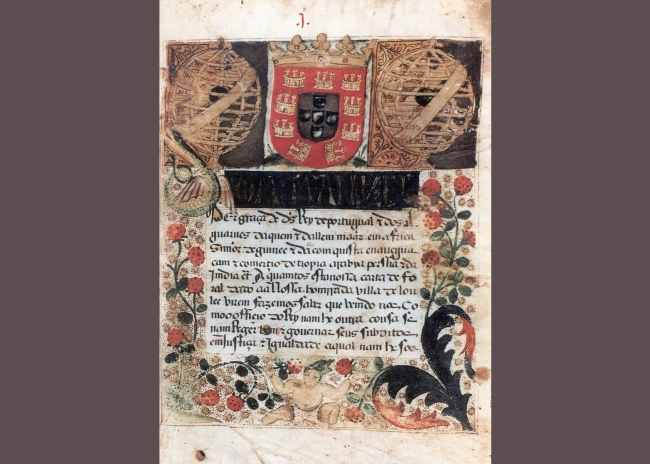 .J.
DOM MANVEL
Per graça de ds Rey de portugal & dos al
guarues daquem & dallem maar em africa
Simor de guinee & da com quista e nauegua
cam & comercio de tiopia arabia perssia & da
India et A quamtos esta nossa carta de fo
ral dado aa Nossa homrrada villa de lou
lee virem fazemos saber que veendo nos Co
mo o officio do Rey nam he outra cousa se
nam Reger bem & gouernar seus subditos
em Justiça & Igualdade a qual nam he soo